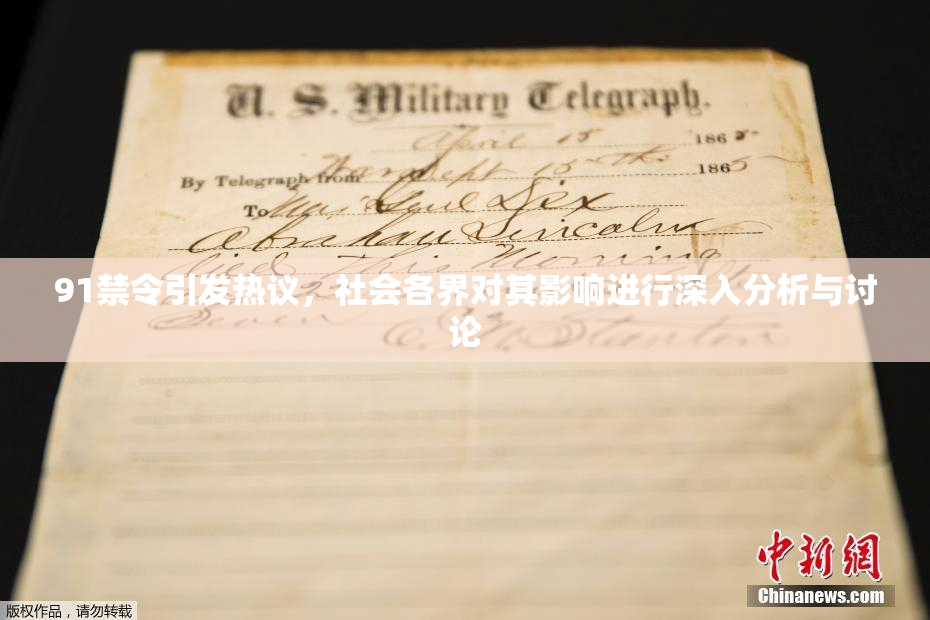 U. S. Military Telegraph.
April 15 1865
By Telegraph from War Dept 15th 1865
To Maj Genl Dix
Abraham Lincoln
died This Morning
91禁令引发热议，社会各界对其影响进行深入分析与讨
论
Seven
E. M. Stanton
中新网
Chinanews.com
版权作品，请勿转载